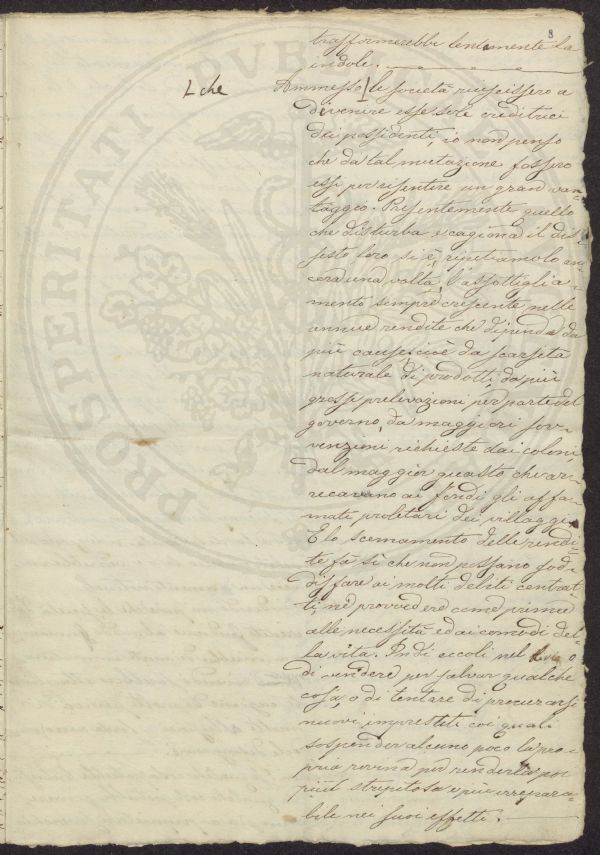 8
trasformerebbe lentamente la
indole. —
L che
Ammesso L le società riuscissero a
divenire esse sole creditrici
dei possidenti, io non penso
che da tal mutazione fossero
essi per risentire un gran van-
taggio. Presentemente quello
che disturba e cagiona il dis-
sesto loro si è, ripetiamolo an-
cora una volta, l'assottiglia-
mento sempre crescente nelle
annue rendite che dipenda da
più cause, cioè da scarsità
naturale di prodotti, da più
grosse prelevazioni per parte del
governo, da maggiori sov-
venzioni richieste dai coloni
dal maggior guasto che ar-
recavano ai fondi gli affa-
mati proletari dei villaggi.
E lo scemamento delle rendi-
te fà sì che non possano sod-
disfare ai molti debiti contrat-
ti, nè provvedere come prima
alle necessità ed ai comodi del-
la vita. Indi eccoli nel
di vendere per salvar qualche
cosa, o di tentare di procurarsi
nuovi imprestiti coi quali
sospender alcuno poco la pro-
pria rovina per renderla poi
più strepitosa e più irrepara-
bile nei suoi effetti. —
PROSPERITATI PVBL